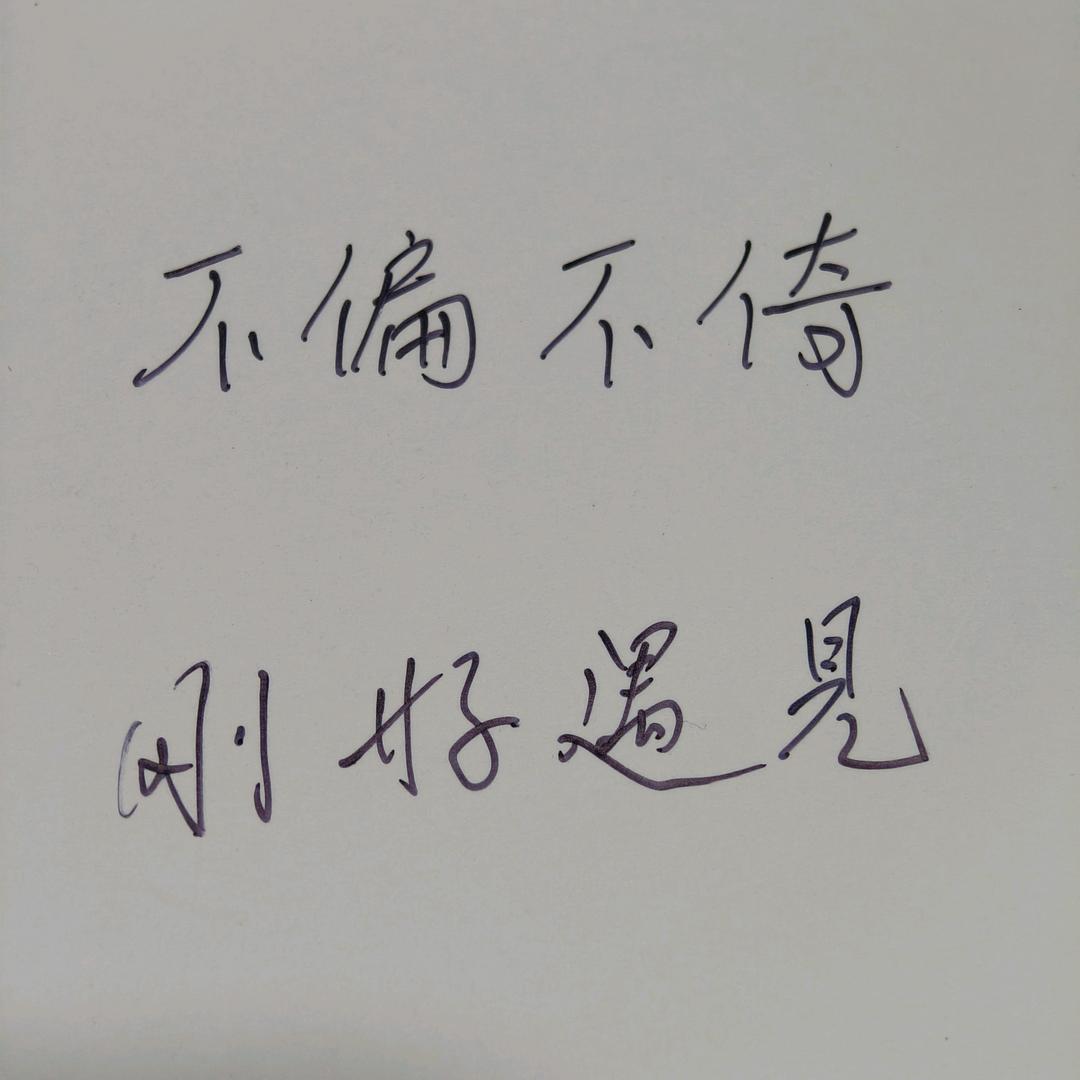 不偏不倚
刚好遇見